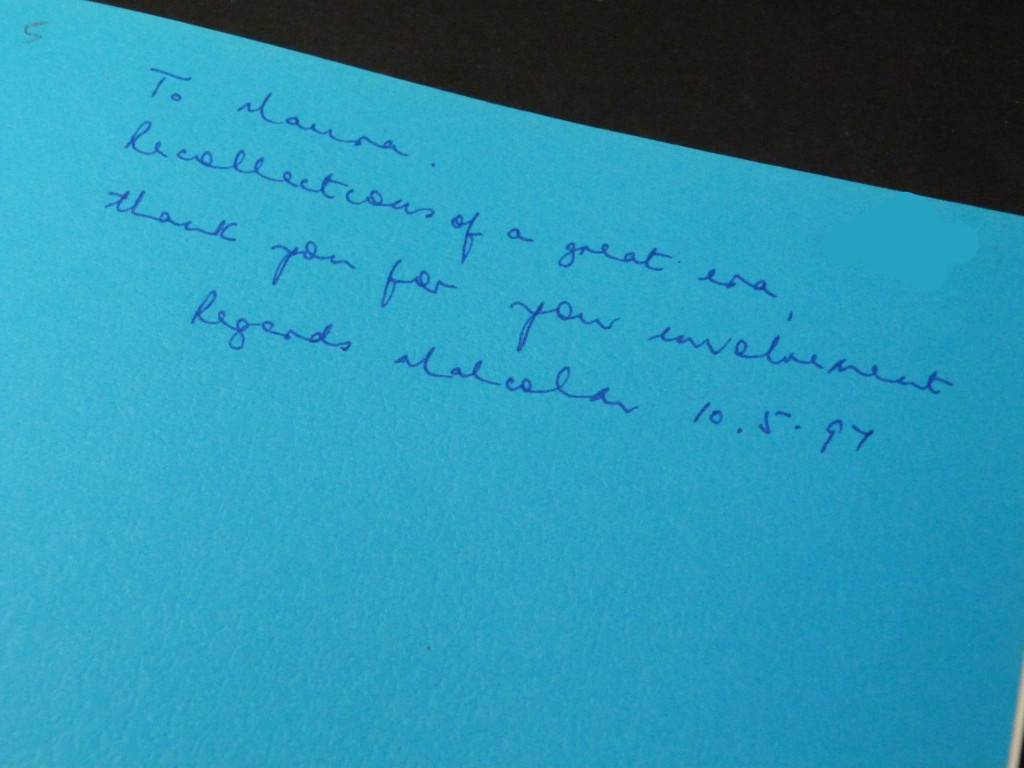 5
To Maura.
Recollections of a great era,
thank you for your involvement
Regards Malcolm 10.5.97